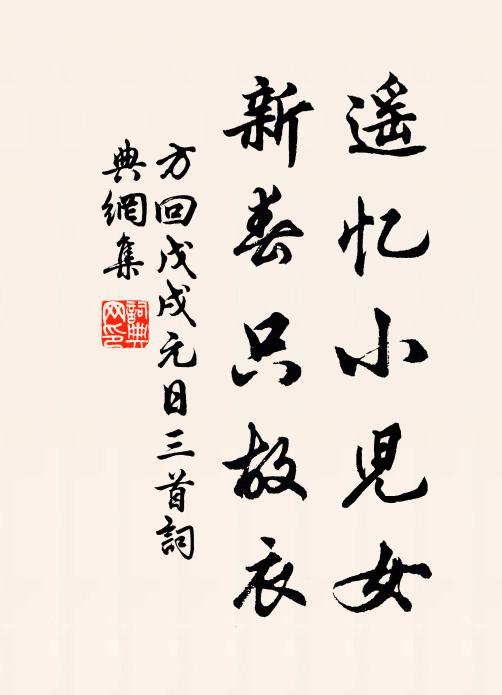 遥忆小児女
新春只故衣
方回戊戌元日三首詞
典網集
詞典
网印